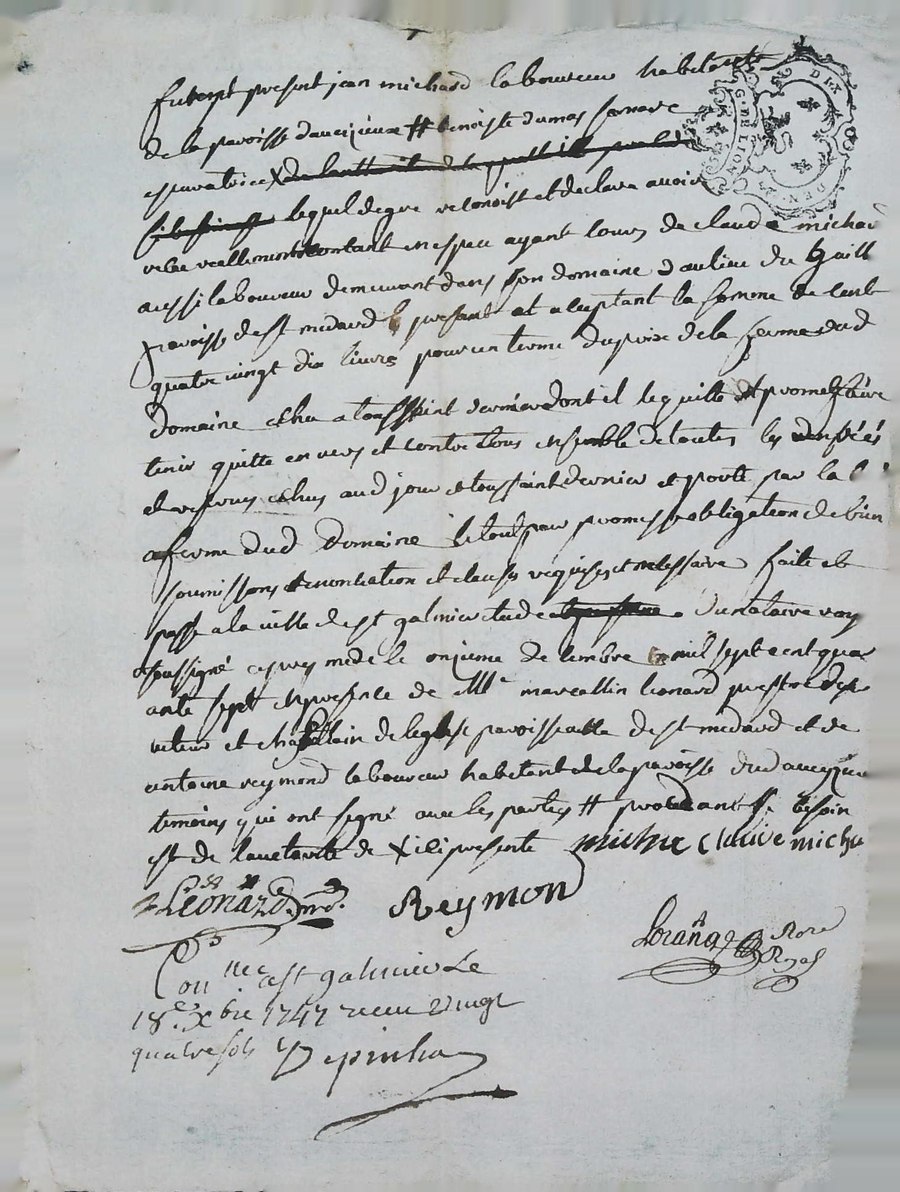 G. DE LION
DIX
DEN
fut present jean michard laboureur habitant
de la paroisse daveizieux # benoiste dumas sa mere
et curatrice X
lequel de gre reconoist et declare avoir
receu reallement contant en espece ayant cours de claude michard
aussi laboureur demeurant dans son domaine au lieu du
paroisse de st medard present et acceptant la somme de cent
quatre vingt dix livres pour un terme du prix de la ferme dud
domaine echu a toussaint dernier dont il le quitte et promet faire
tenir quitte envers et contre tous ensemble de toutes les
et reserves echus aud jour toussaint dernier et porté par la
a ferme dud domaine le tout par promesse obligation de bien
soumissons renontiation et clauses requises et nessaire faite et
passe a la ville de st galmier etude du notaire roy
soussigné apres midi le onzieme decembre mil sept cent quar
ante sept en presence de Mre marcallin leonard prestre
et chapellain de leglise paroissialle de st medard et de
antoine reymond laboureur habitant de la paroisse dud aveizieu
temoins qui ont signé avec les parties # procedant
est de lauctorité de X ici presente michar claude micha
Leonard
Reymon
Loranget
Nore
Royal
Con lle a st galmier le
18e Xbre 1747 receu vingt
quatre sols Depinha